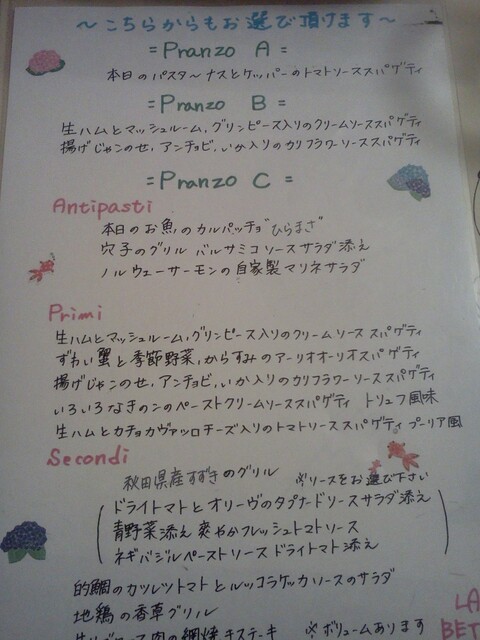 ～こちらからもお選び頂けます～
=Pranzo A =
本日のパスタ～ナスとケッパーのトマトソーススパゲティ
=Pranzo B =
生ハムとマッシュルーム，グリンピース入りのクリームソーススパゲティ
揚げじゃこのせ，アンチョビ，いか入りのカリフラワーソーススパゲティ
=Pranzo C =
Antipasti
本日のお魚のカルパッチョ"ひらまさ"
穴子のグリル バルサミコソースサラダ添え
ノルウェーサーモンの自家製マリネサラダ
Primi
生ハムとマッシュルーム，グリンピース入りのクリームソーススパゲティ
ずわい蟹と季節野菜，からすみのアーリオオーリオスパゲティ
揚げじゃこのせ，アンチョビ，いか入りのカリフラワーソーススパゲティ
いろいろなきのこのペーストクリームソーススパゲティ トリュフ風味
生ハムとカチョカヴァッロチーズ入りのトマトソーススパゲティ プーリア風
Secondi
秋田県産すずきのグリル ※ソースをお選び下さい
ドライトマトとオリーヴのタプナードソースサラダ添え
青野菜添え 爽やかフレッシュトマトソース
ネギバジルペーストソース ドライトマト添え
的鯛のカツレツトマトとルッコラケッカソースのサラダ
地鶏の香草グリル
肉の網焼きステーキ ※ボリュームあります
LA
BET